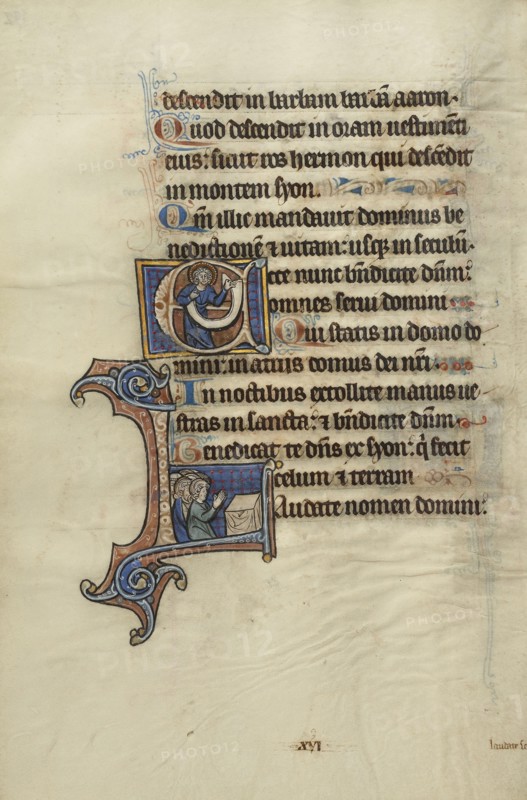 descendit in barbam barbā aaron.
Quod descendit in oram uestimēti
eius: sicut ros hermon qui descēdit
in montem syon.
Qm̄ illic mandauit dominus be
nedictionē ⁊ uitam: usq; in seculū.
Ecce nunc bn̄dicite dn̄m:
omnes serui domini
Qui statis in domo do
mini: in atriis domus dei nr̄i.
In noctibus extollite manus ue
stras in sancta: ⁊ bn̄dicite dn̄m.
Benedicat te dn̄s ex syon: q̄ fecit
celum ⁊ terram
Laudate nomen domini:
XVI
PHOTO12